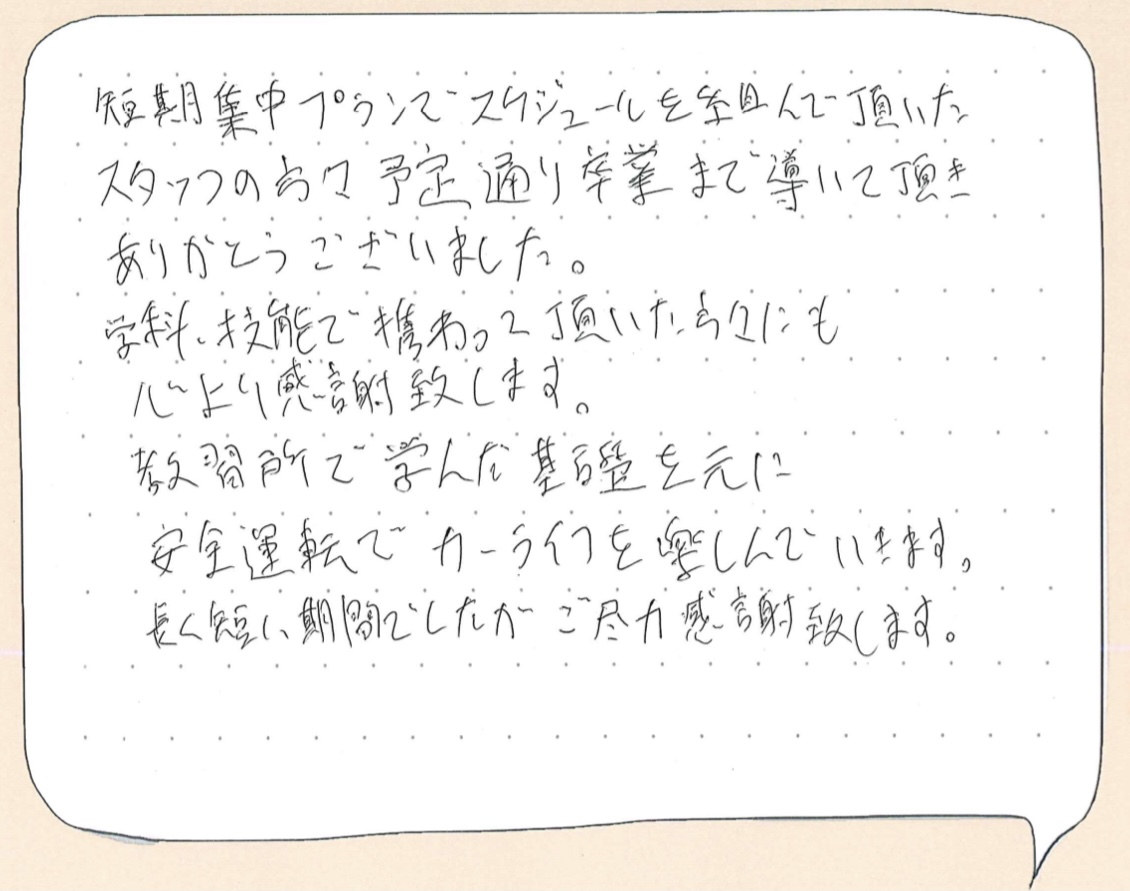 短期集中プランでスケジュールを組んで頂いた
スタッフの方々予定通り卒業まで導いて頂き
ありがとうございました。
学科、技能で携わって頂いた方々にも
心より感謝致します。
教習所で学んだ基礎を元に
安全運転でカーライフを楽しんでいきます。
長く短い期間でしたがご尽力感謝致します。